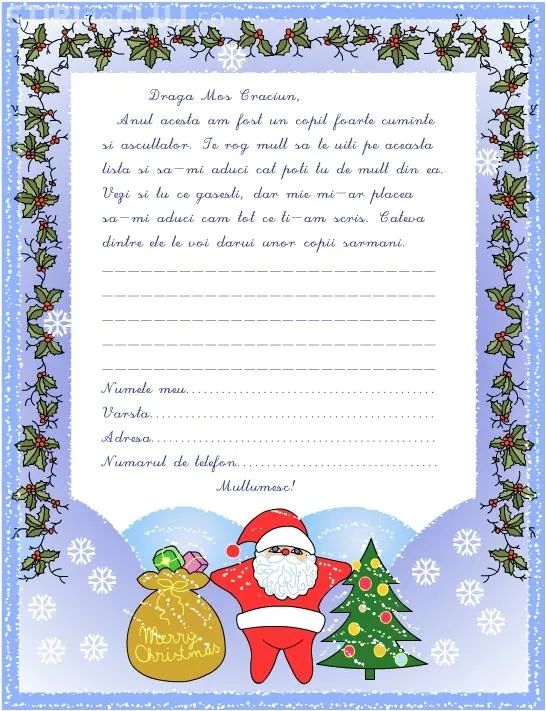 STIRIdeCLUJ.ro
Draga Mos Craciun,
Anul acesta am fost un copil foarte cuminte
si ascultator. Te rog mult sa te uiti pe aceasta
lista si sa-mi aduci cat poti tu de mult din ea.
Vezi si tu ce gasesti, dar mie mi-ar placea
sa-mi aduci cam tot ce ti-am scris. Cateva
dintre ele le voi darui unor copii sarmani.
__________________________
__________________________
__________________________
__________________________
__________________________
Numele meu..........................................
Varsta................................................
Adresa................................................
Numarul de telefon..................................
Multumesc!
Merry
Christmas